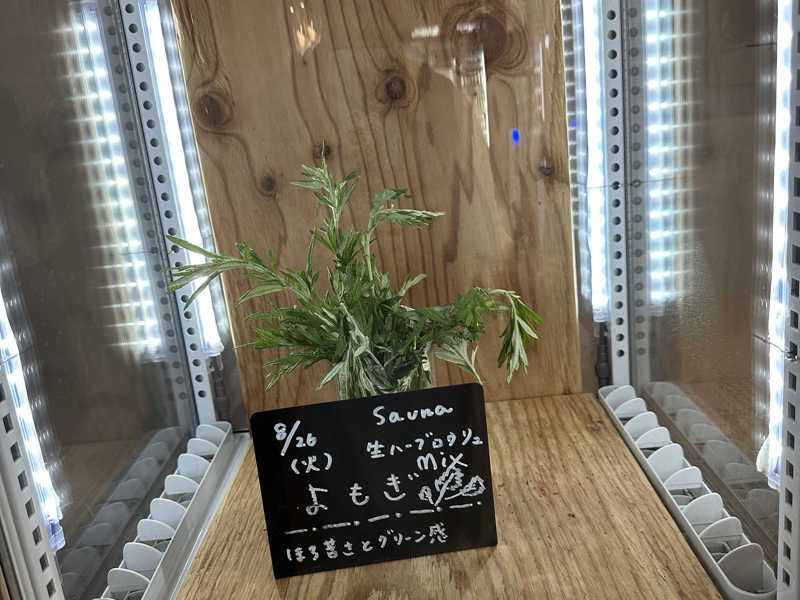 Sauna
8/26
(火)
生ハーブロウリュ
Mix
よもぎ
ほろ苦さとグリーン感